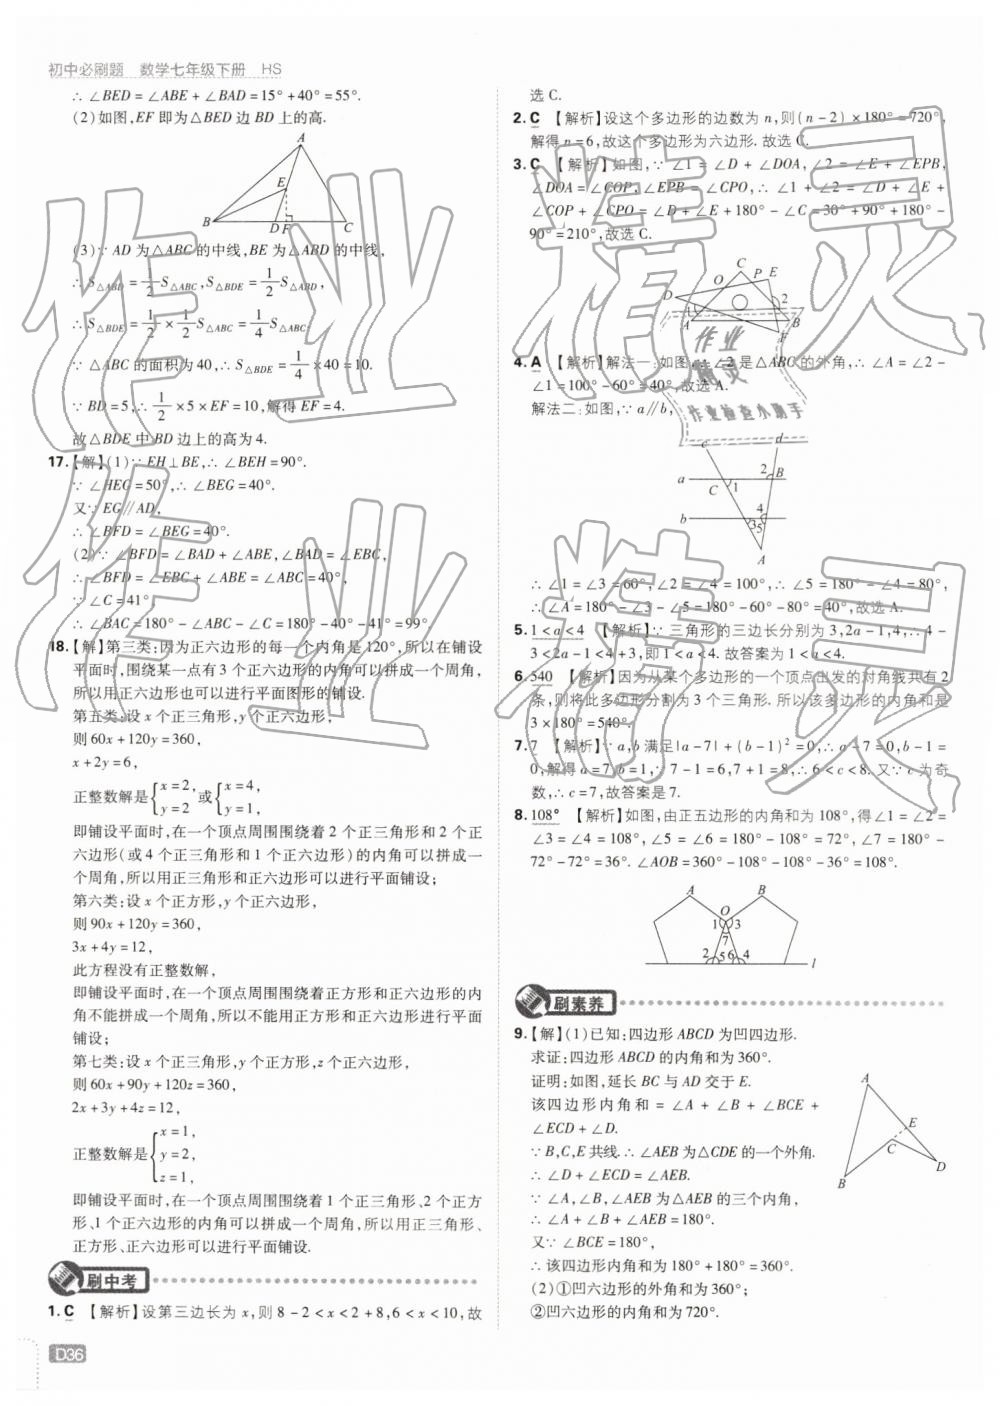 初中必刷题 数学七年级下册 HS
∴ ∠BED = ∠ABE + ∠BAD = 15° + 40° = 55°.
(2)如图,EF 即为△BED 边 BD 上的高.
A
E
B D F C
(3)∵ AD 为△ABC 的中线,BE 为△ABD 的中线,
∴ S△ABD = 1/2 S△ABC, S△BDE = 1/2 S△ABD,
∴ S△BDE = 1/2 × 1/2 S△ABC = 1/4 S△ABC.
∵ △ABC 的面积为 40,∴ S△BDE = 1/4 × 40 = 10.
∵ BD = 5,∴ 1/2 × 5 × EF = 10,解得 EF = 4.
故△BDE 中 BD 边上的高为 4.
17.【解】(1)∵ EH⊥BE,∴ ∠BEH = 90°.
∵ ∠HEG = 50°,∴ ∠BEG = 40°.
又∵ EG∥AD,
∴ ∠BFD = ∠BEG = 40°.
(2)∵ ∠BFD = ∠BAD + ∠ABE,∠BAD = ∠EBC,
∴ ∠BFD = ∠EBC + ∠ABE = ∠ABC = 40°,
∵ ∠C = 41°
∴ ∠BAC = 180° − ∠ABC − ∠C = 180° − 40° − 41° = 99°
18.【解】第三类:因为正六边形的每一个内角是 120°,所以在铺设
平面时,围绕某一点有 3 个正六边形的内角可以拼成一个周角,
所以用正六边形也可以进行平面图形的铺设.
第五类:设 x 个正三角形,y 个正六边形,
则 60x + 120y = 360,
x + 2y = 6,
正整数解是 {x = 2, y = 2 或 {x = 4, y = 1,
即铺设平面时,在一个顶点周围围绕着 2 个正三角形和 2 个正
六边形(或 4 个正三角形和 1 个正六边形)的内角可以拼成一
个周角,所以用正三角形和正六边形可以进行平面铺设;
第六类:设 x 个正方形,y 个正六边形,
则 90x + 120y = 360,
3x + 4y = 12,
此方程没有正整数解,
即铺设平面时,在一个顶点周围围绕着正方形和正六边形的内
角不能拼成一个周角,所以不能用正方形和正六边形进行平面
铺设;
第七类:设 x 个正三角形,y 个正方形,z 个正六边形,
则 60x + 90y + 120z = 360,
2x + 3y + 4z = 12,
正整数解是 {x = 1, y = 2, z = 1,
即铺设平面时,在一个顶点周围围绕着 1 个正三角形、2 个正方
形、1 个正六边形的内角可以拼成一个周角,所以用正三角形、
正方形、正六边形可以进行平面铺设.
刷中考
1. C 【解析】设第三边长为 x,则 8 − 2 < x < 2 + 8,6 < x < 10,故
D36
选 C.
2. C 【解析】设这个多边形的边数为 n,则(n − 2) × 180° = 720°,
解得 n = 6,故这个多边形为六边形. 故选 C.
3. C 【解析】如图,∵ ∠1 = ∠D + ∠DOA,∠2 = ∠E + ∠EPB,
∠DOA = ∠COP,∠EPB = ∠CPO,∴ ∠1 + ∠2 = ∠D + ∠E +
∠COP + ∠CPO = ∠D + ∠E + 180° − ∠C = 30° + 90° + 180° −
90° = 210°,故选 C.
C
O P E
D
1 2
A B
F
4. A 【解析】解法一:如图,∵ ∠2 是△ABC 的外角,∴ ∠A = ∠2 −
∠1 = 100° − 60° = 40°,故选 A.
解法二:如图,∵ a∥b,
作业精灵
作业检查小助手
c d
a C 1 2 B
b 3 5 4
A
∴ ∠1 = ∠3 = 60°,∠2 = ∠4 = 100°,∴ ∠5 = 180° − ∠4 = 80°,
∴ ∠A = 180° − ∠3 − ∠5 = 180° − 60° − 80° = 40°,故选 A.
5. 1 < a < 4 【解析】∵ 三角形的三边长分别为 3,2a − 1,4,∴ 4 −
3 < 2a − 1 < 4 + 3,即 1 < a < 4. 故答案为 1 < a < 4.
6. 540 【解析】因为从某个多边形的一个顶点出发的对角线共有 2
条,则将此多边形分割为 3 个三角形. 所以该多边形的内角和是
3 × 180° = 540°.
7. 7 【解析】∵ a,b 满足|a − 7| + (b − 1)² = 0,∴ a − 7 = 0,b − 1 =
0,解得 a = 7,b = 1,∵ 7 − 1 = 6,7 + 1 = 8,∴ 6 < c < 8. 又∵ c 为奇
数,∴ c = 7,故答案是 7.
8. 108° 【解析】如图,由正五边形的内角和为 108°,得∠1 = ∠2 =
∠3 = ∠4 = 108°,∠5 = ∠6 = 180° − 108° = 72°,∠7 = 180° −
72° − 72° = 36°. ∠AOB = 360° − 108° − 108° − 36° = 108°.
A B
O
1 3
7
2 5 6 4 l
刷素养
9.【解】(1)已知:四边形 ABCD 为凹四边形.
求证:四边形 ABCD 的内角和为 360°.
证明:如图,延长 BC 与 AD 交于 E.
该四边形内角和 = ∠A + ∠B + ∠BCE +
∠ECD + ∠D.
∵ B,C,E 共线. ∴ ∠AEB 为△CDE 的一个外角.
∴ ∠D + ∠ECD = ∠AEB.
∵ ∠A,∠B,∠AEB 为△AEB 的三个内角,
∴ ∠A + ∠B + ∠AEB = 180°.
又∵ ∠BCE = 180°,
∴ 该四边形内角和为 180° + 180° = 360°.
(2)①凹六边形的外角和为 360°;
②凹六边形的内角和为 720°.
A
E
C
D
B
作业精灵
作业精灵